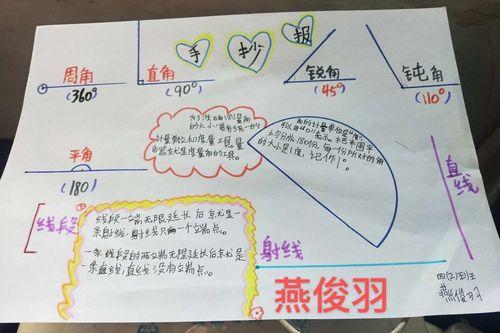 手 抄 报
周角
(360°
直角
(90°)
锐角
(45°)
钝角
(110°)
平角
(180)
为了准方便的量角
的大小,
计量单位和度量工具,量
角器就是度量角的工具。
角的计量单位是“度”
可以用“°”表示。把半圆平
均分成180份,每一份所对的角
的大小是1度,记作1°。
直线
线段
线段一端无限延长后就是一
条射线,射线只有一个端点。
一条线段的两端无限延长后就是
一条直线,直线没有端点。
射线
四(2)班
燕俊羽
燕俊羽